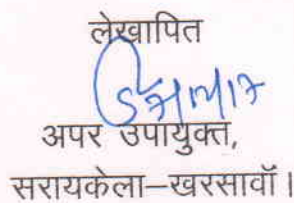 लेखापित
अपर उपायुक्त,
सरायकेला–खरसावॉ।